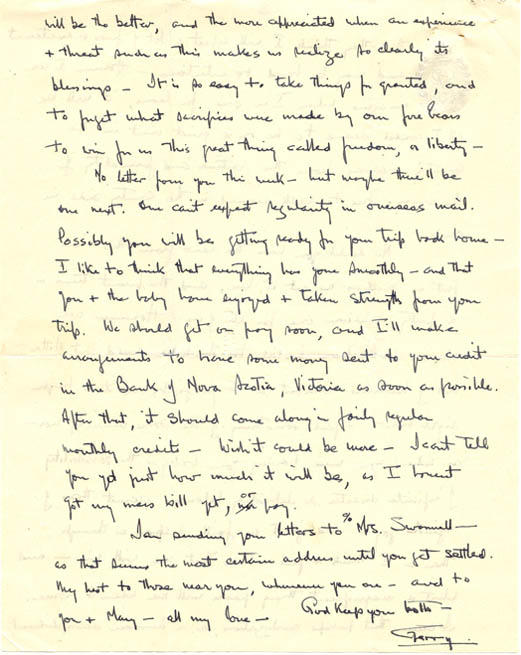 will be the better, and the more appreciated when an experience
+ threat such as this makes us realize so clearly its
blessings - It is so easy to take things for granted, and
to forget what sacrifices were made by our fore bears
to win for us this great thing called freedom, or liberty -
No letter from you this week - but maybe there'll be
one next. One can't expect regularity in overseas mail.
Possibly you will be getting ready for your trip back home -
I like to think that everything has gone smoothly - and that
you + the baby have enjoyed + taken strength from your
trip. We should get on pay soon, and I'll make
arrangements to have some money sent to your credit
in the Bank of Nova Scotia, Victoria as soon as possible.
After that, it should come along in fairly regular
monthly credits - Wish it could be more - I cant tell
you yet just how much it will be, as I havent
got my mess bill yet, or pay.
I am sending your letters to % Mrs.
as that seems the most certain address until you get settled.
My best to those near you, wherever you are - and to
you + Mary - all my love - God keep you both -
Gerry.